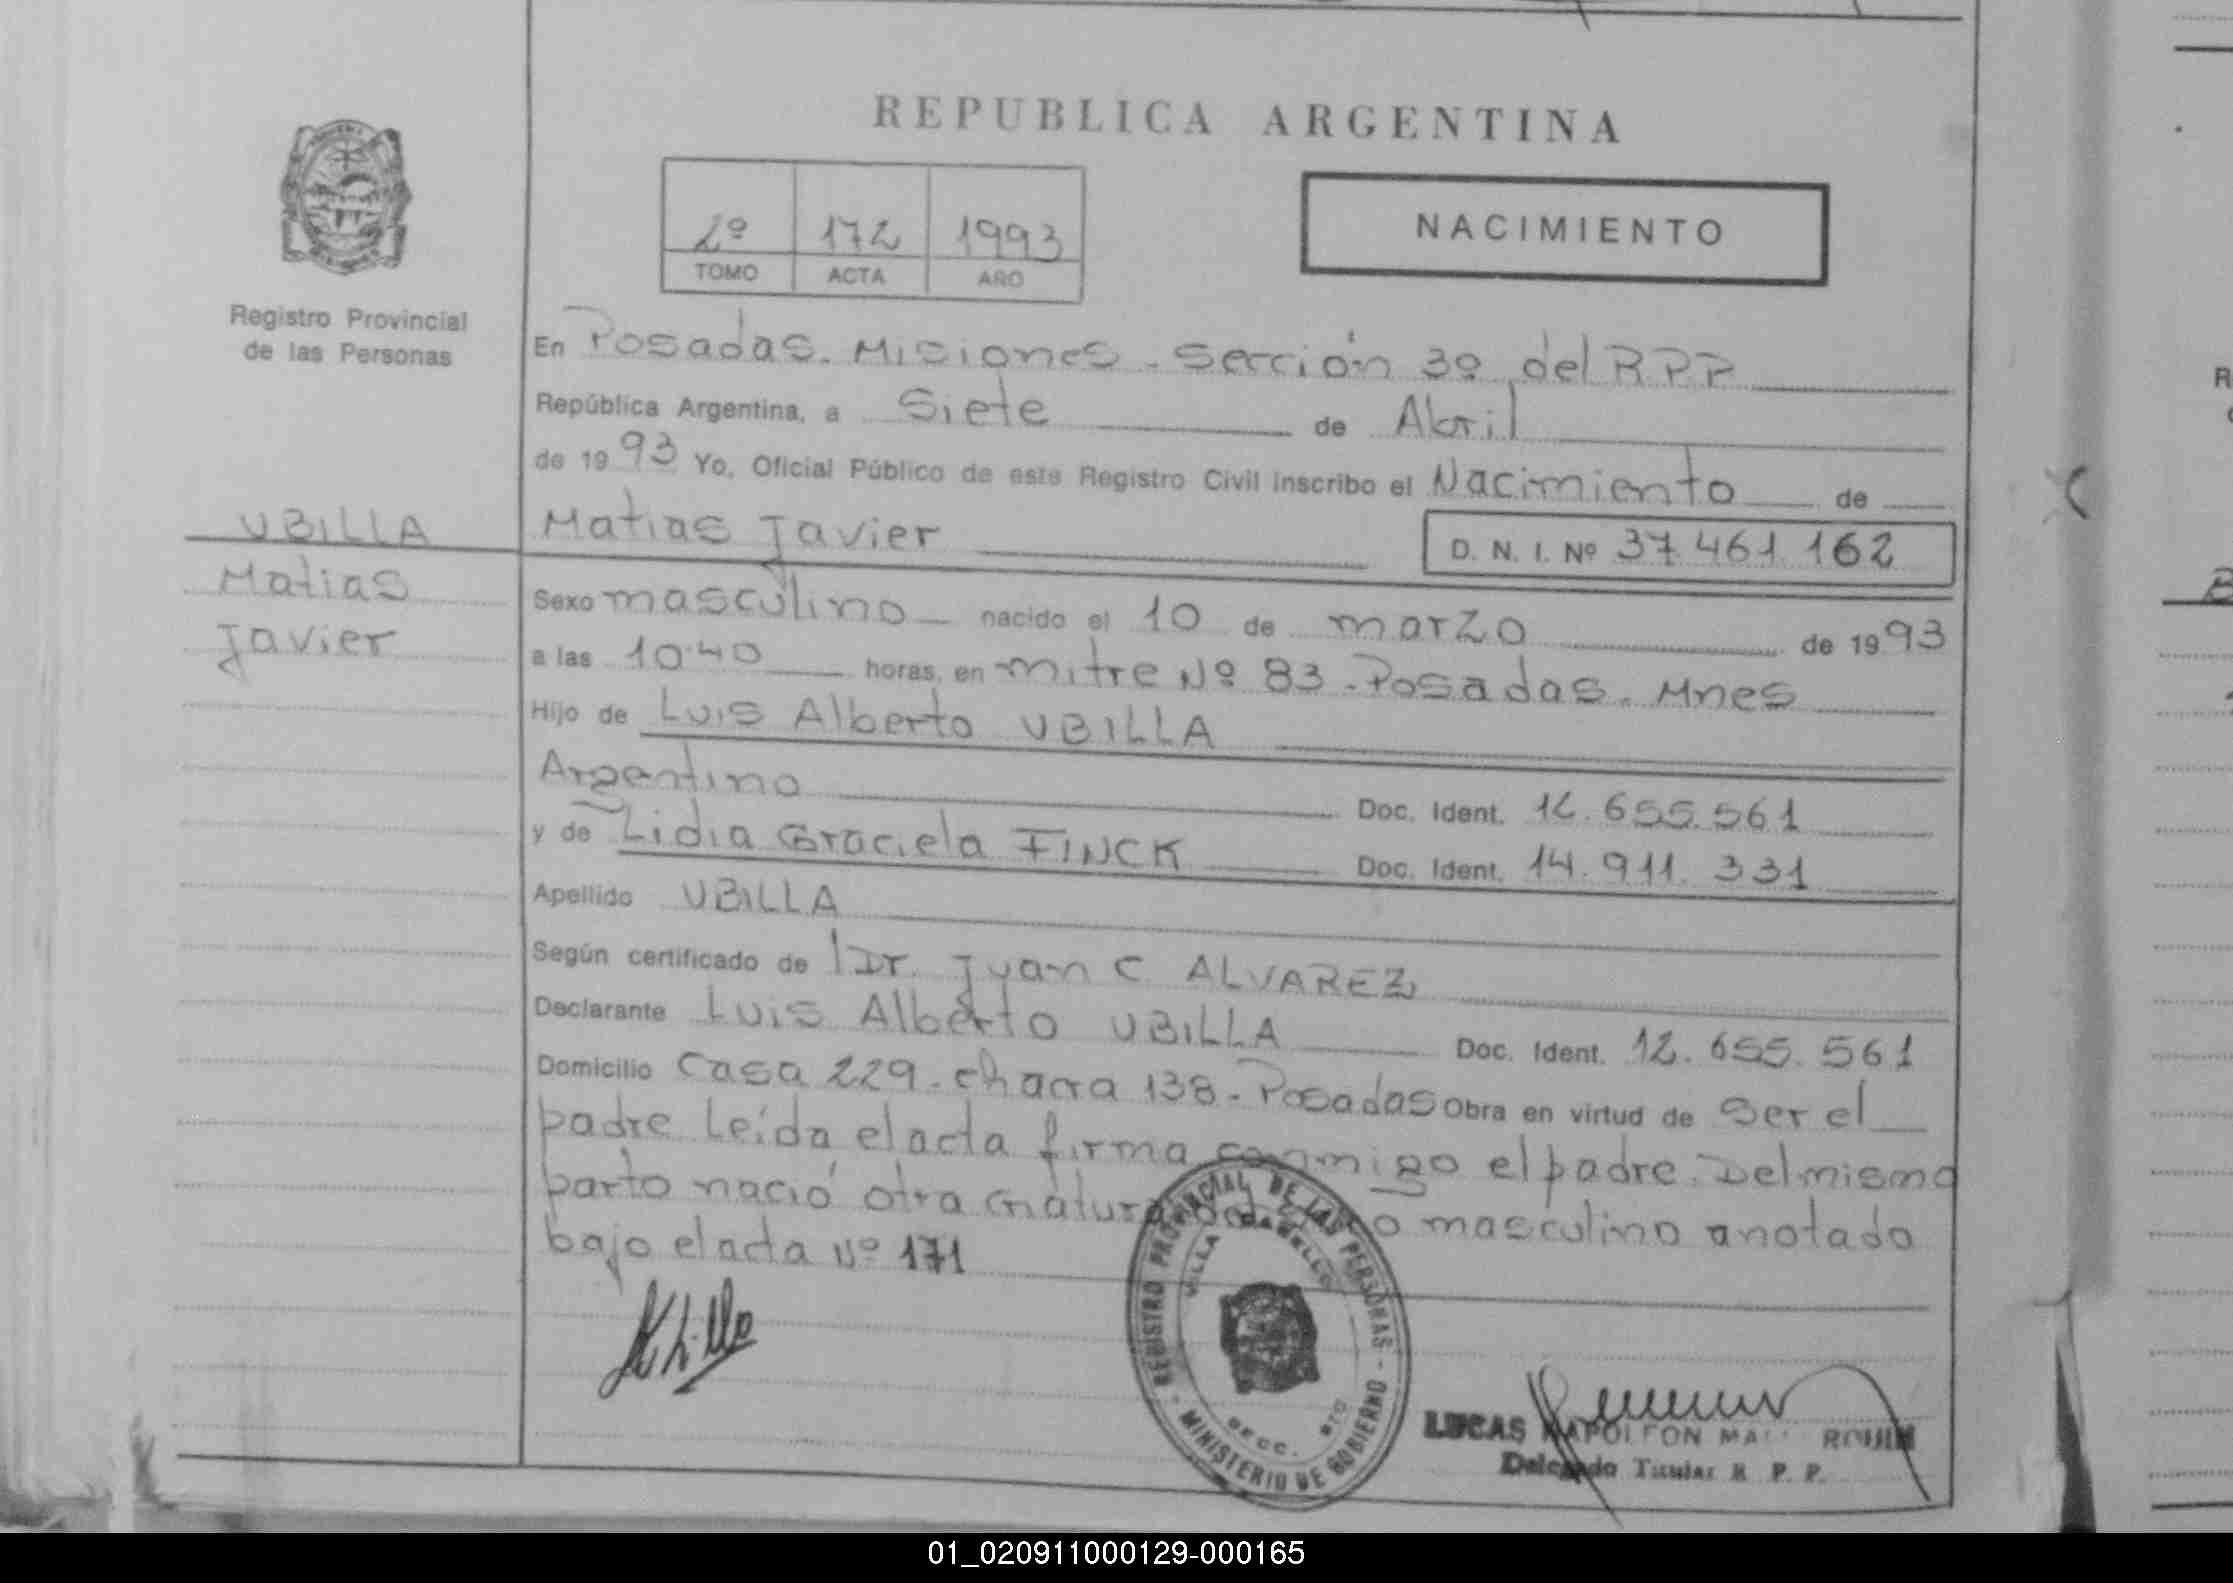 REPUBLICA ARGENTINA
2º 172 1993
TOMO ACTA AÑO
NACIMIENTO
Registro Provincial
de las Personas
UBILLA
Matias
Javier
En Posadas. Misiones - Sección 3º del R.P.P
República Argentina, a Siete de Abril
de 1993 Yo, Oficial Público de este Registro Civil inscribo el Nacimiento de
Matias Javier D. N. I. Nº 37.461.162
Sexo masculino nacido el 10 de marzo de 1993
a las 10:40 horas, en mitre Nº 83 - Posadas. Mnes
Hijo de Luis Alberto UBILLA
Argentino Doc. Ident. 12.655.561
y de Lidia Graciela FINCK Doc. Ident. 14.911.331
Apellido UBILLA
Según certificado de Dr. Juan C ALVAREZ
Declarante Luis Alberto UBILLA Doc. Ident. 12.655.561
Domicilio Casa 229 - chacra 138 - Posadas Obra en virtud de Ser el
padre Leída el acta firma conmigo el padre. Del mismo
parto nació otra criatura de sexo masculino anotado
bajo el acta Nº 171
REGISTRO PROVINCIAL DE LAS PERSONAS - MINISTERIO DE GOBIERNO -
VILLA CABELLO
SECC.
LUCAS NAPOLEON
Delegado Titular R. P. P.
01_020911000129-000165